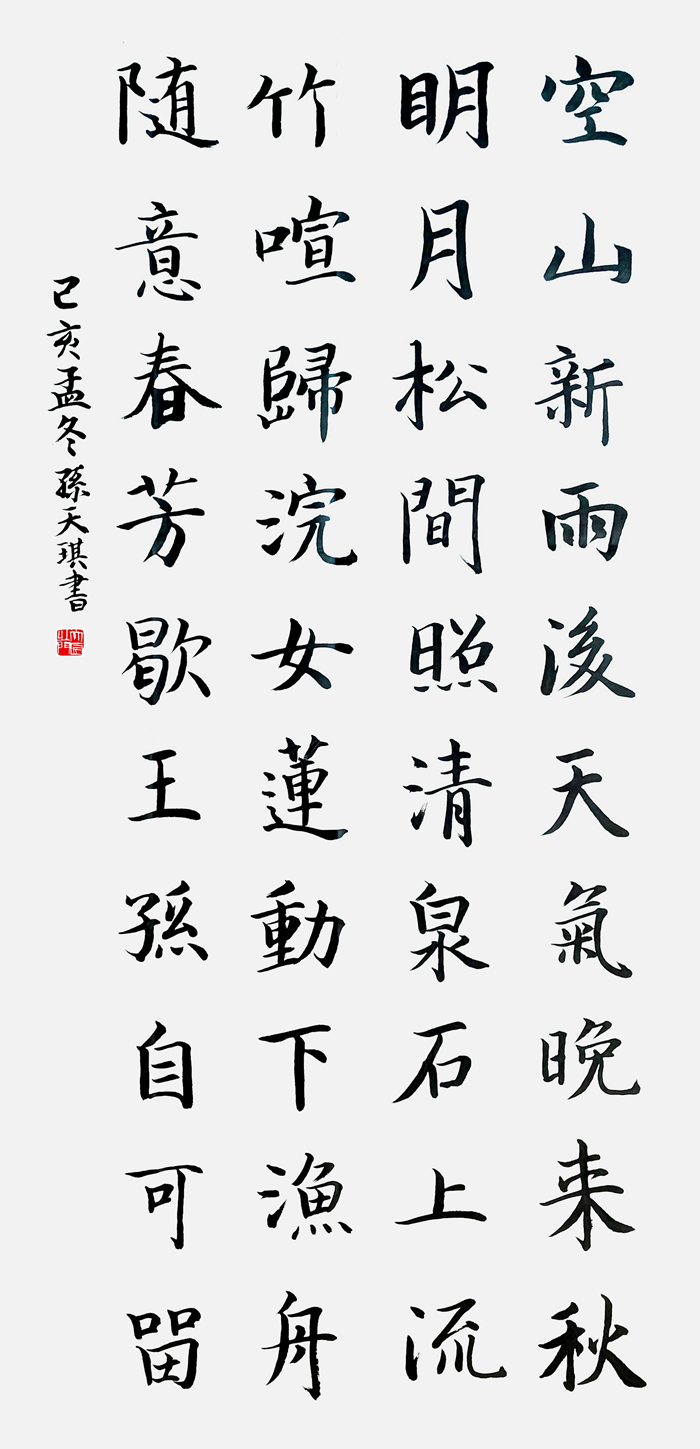 空山新雨後天氣晚来秋
明月松間照清泉石上流
竹喧歸浣女蓮動下漁舟
随意春芳歇王孫自可留
己亥孟冬孫天琪書